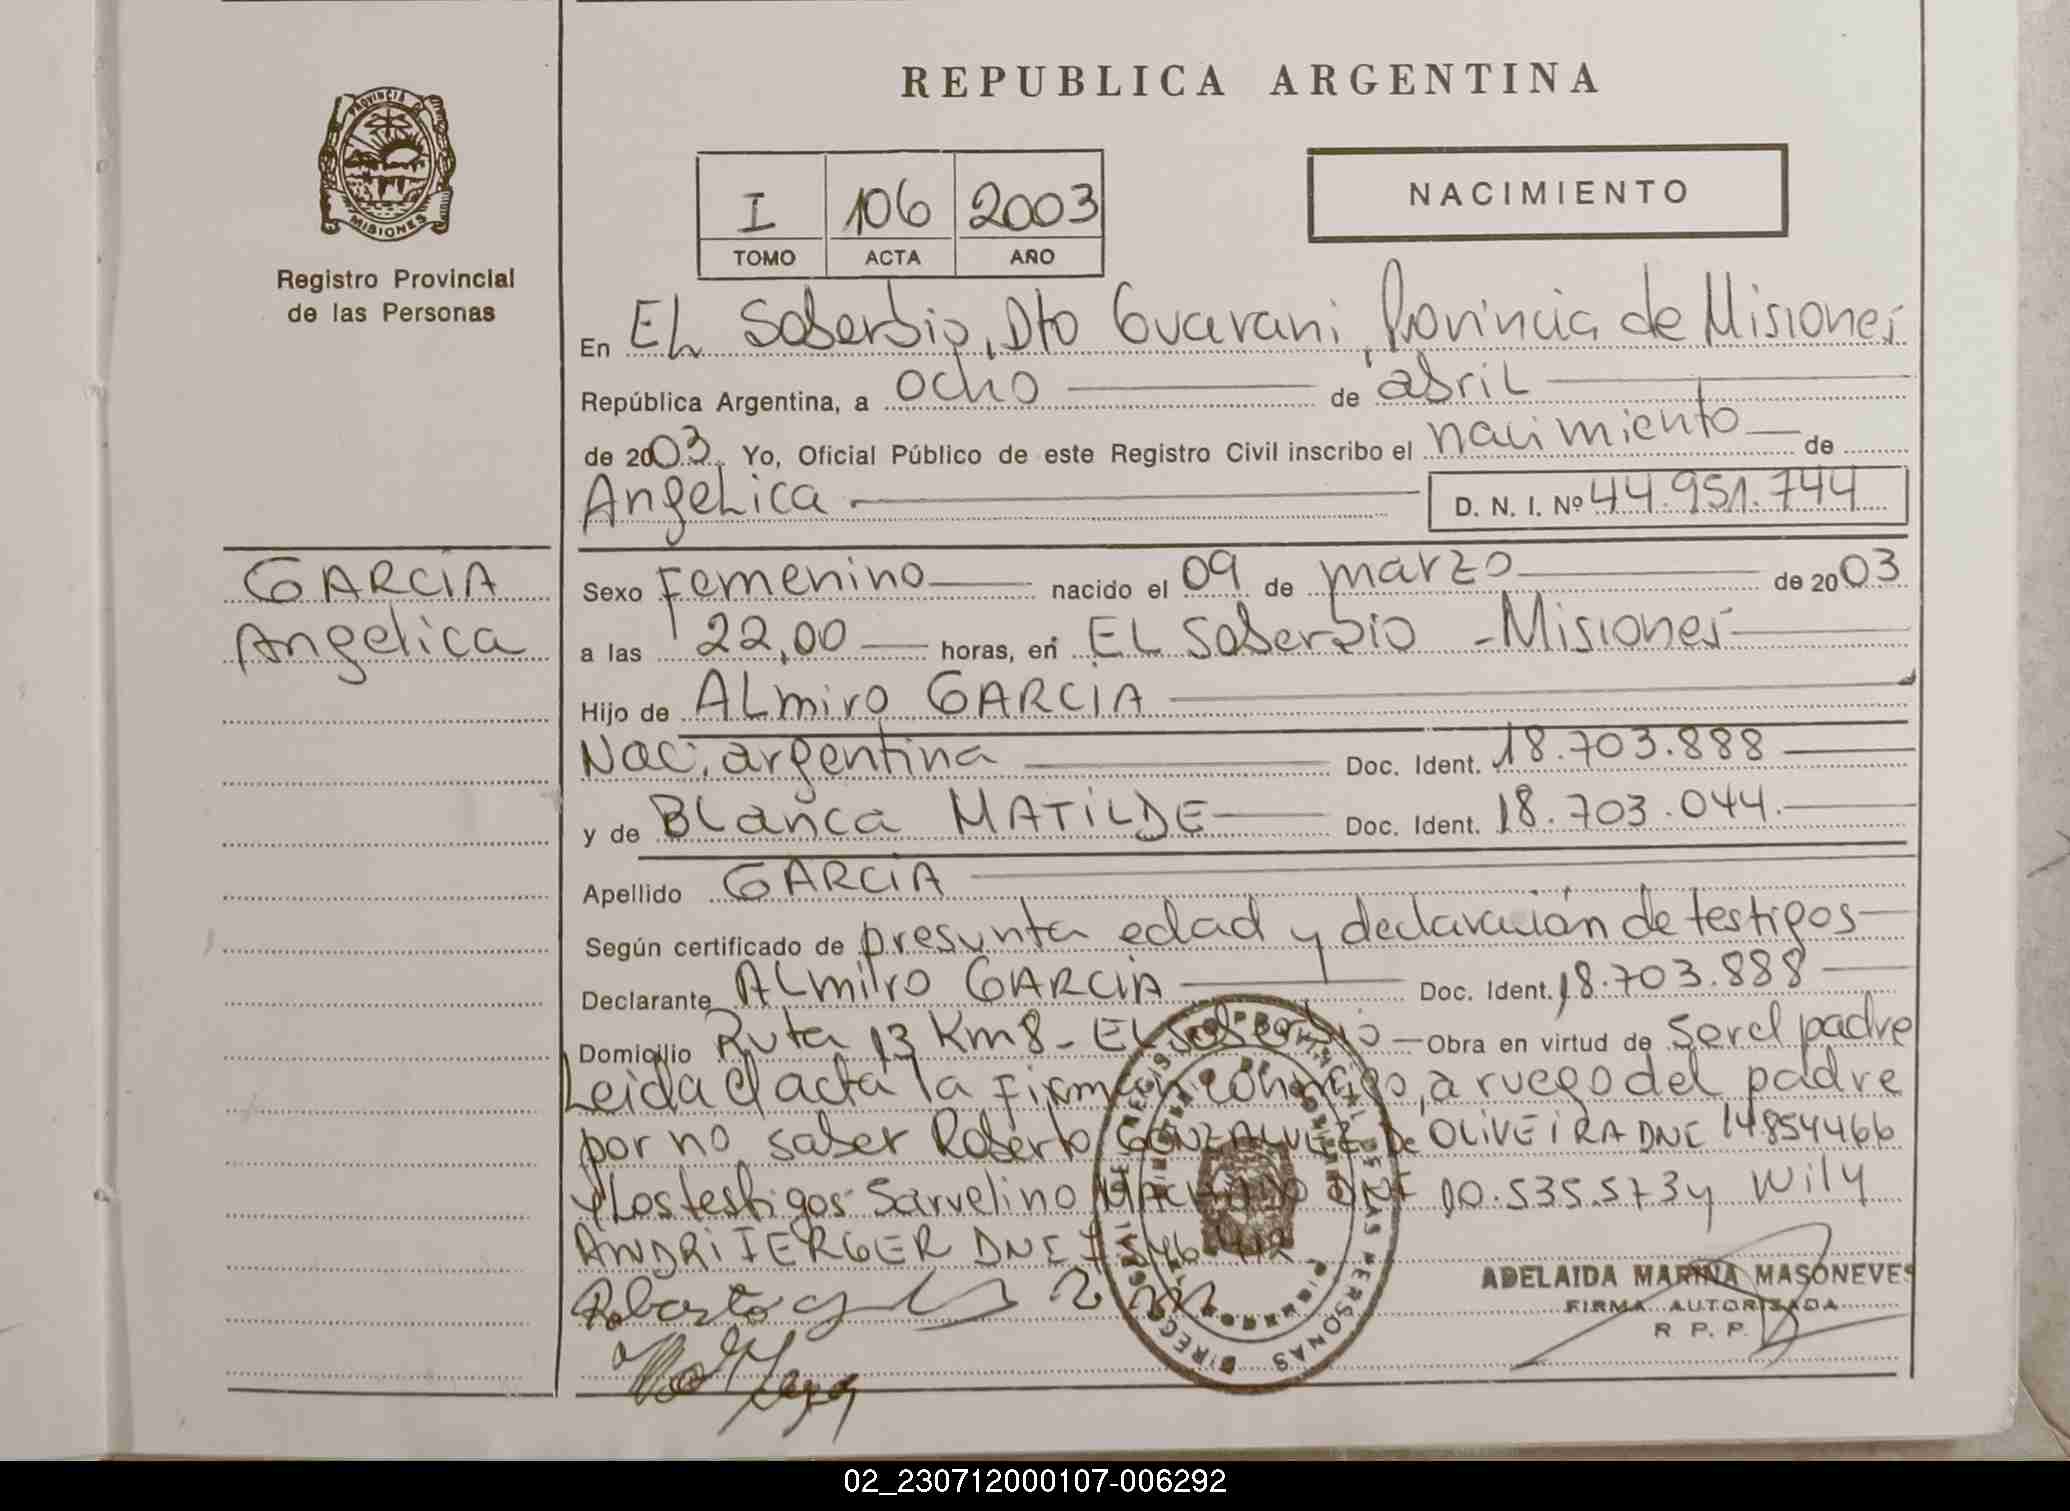 PROVINCIA
MISIONES
Registro Provincial
de las Personas
GARCIA
Angelica
REPUBLICA ARGENTINA
I 106 2003
TOMO ACTA AÑO
NACIMIENTO
En EL Soberbio, Dto Guarani, Provincia de Misiones
República Argentina, a ocho de abril
de 2003. Yo, Oficial Público de este Registro Civil inscribo el nacimiento de
Angelica D. N. I. Nº 44.951.744
Sexo Femenino nacido el 09 de marzo de 2003
a las 22,00 horas, en EL Soberbio - Misiones
Hijo de ALmiro GARCIA
Nac. argentina Doc. Ident. 18.703.888
y de BLanca MATILDE Doc. Ident. 18.703.044.
Apellido GARCIA
Según certificado de presunta edad y declaración de testigos
Declarante ALmiro GARCIA Doc. Ident. 18.703.888
Domicilio Ruta 13 Km 8 - EL Soberbio Obra en virtud de Ser el padre
Leida el acta la firman conmigo, a ruego del padre
por no saber Roberto GONZALVEZ De OLIVEIRA DNI 14854466
y Los testigos Sarvelino DNI 10.535.573 y Wily
ANDRI IERGER DNI
Roberto
ADELAIDA MARINA MASONEVES
FIRMA AUTORIZADA
R P. P.
02_230712000107-006292